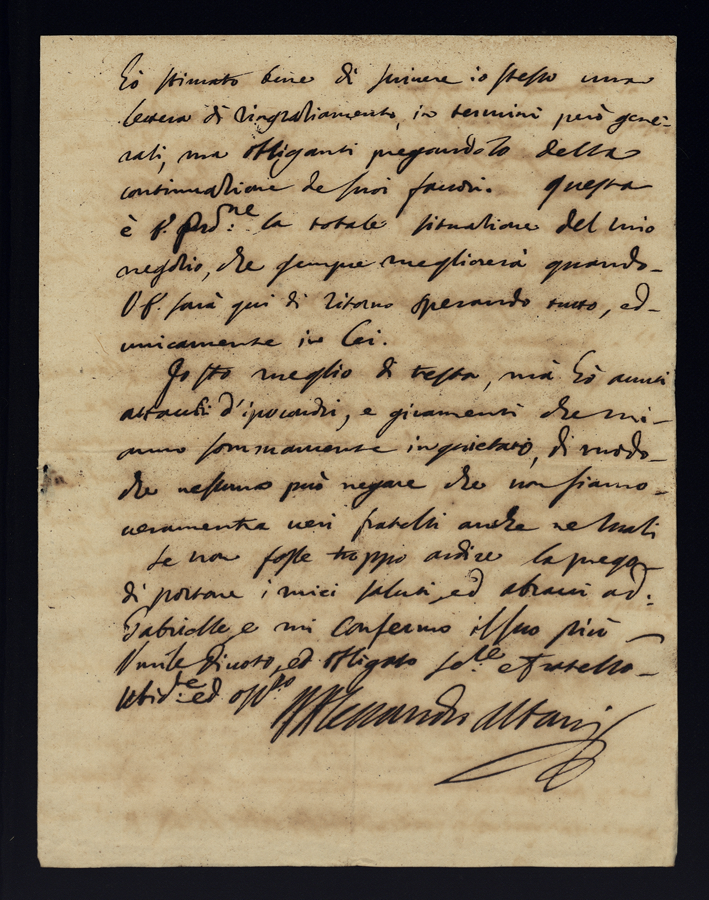 Hò stimato bene di scrivere io stesso una
lettera di ringraziamento, in termini però gene-
rali, ma obliganti pregandolo della
continuazione de suoi favori. Questa
è la totale situazione del mio
negozio, che sempre megliorerà quando
V.S. sarà qui di ritorno sperando tutto, ed
unicamente in Lei.
Io stò meglio di testa, mà hò avuti
attacchi d'ipocondri, e giramenti che mi
anno sommamente inquietato, di modo
che nessuno può negare che non siamo
veramente veri fratelli anche ne mali
se non fosse troppo ardire la prego
di portare i miei saluti, ed abracci ad
Gabrielle, e mi confermo il suo più
Umile Divoto, ed obligato e Fratello
ed